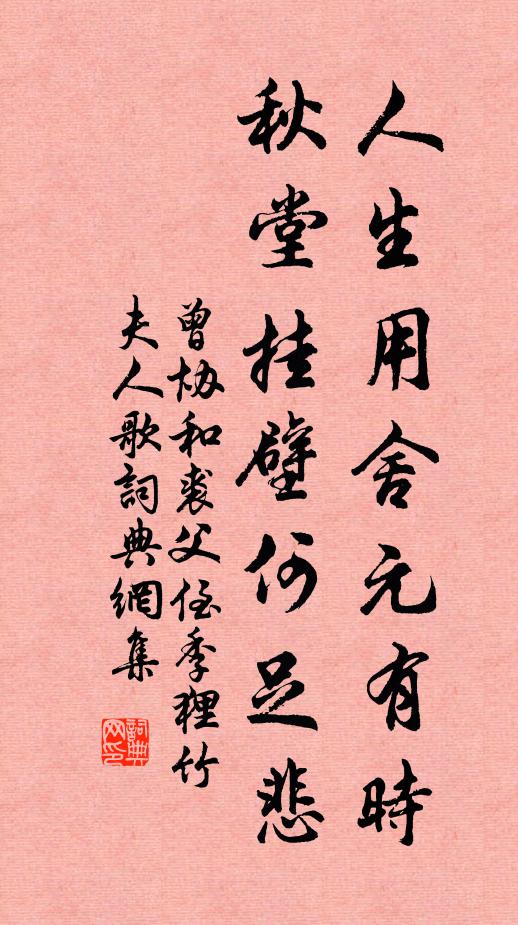 人生用舍元有時
秋堂挂壁何足悲
曾協和裘父侄季狸竹
夫人歌詞典網集
詞典網印